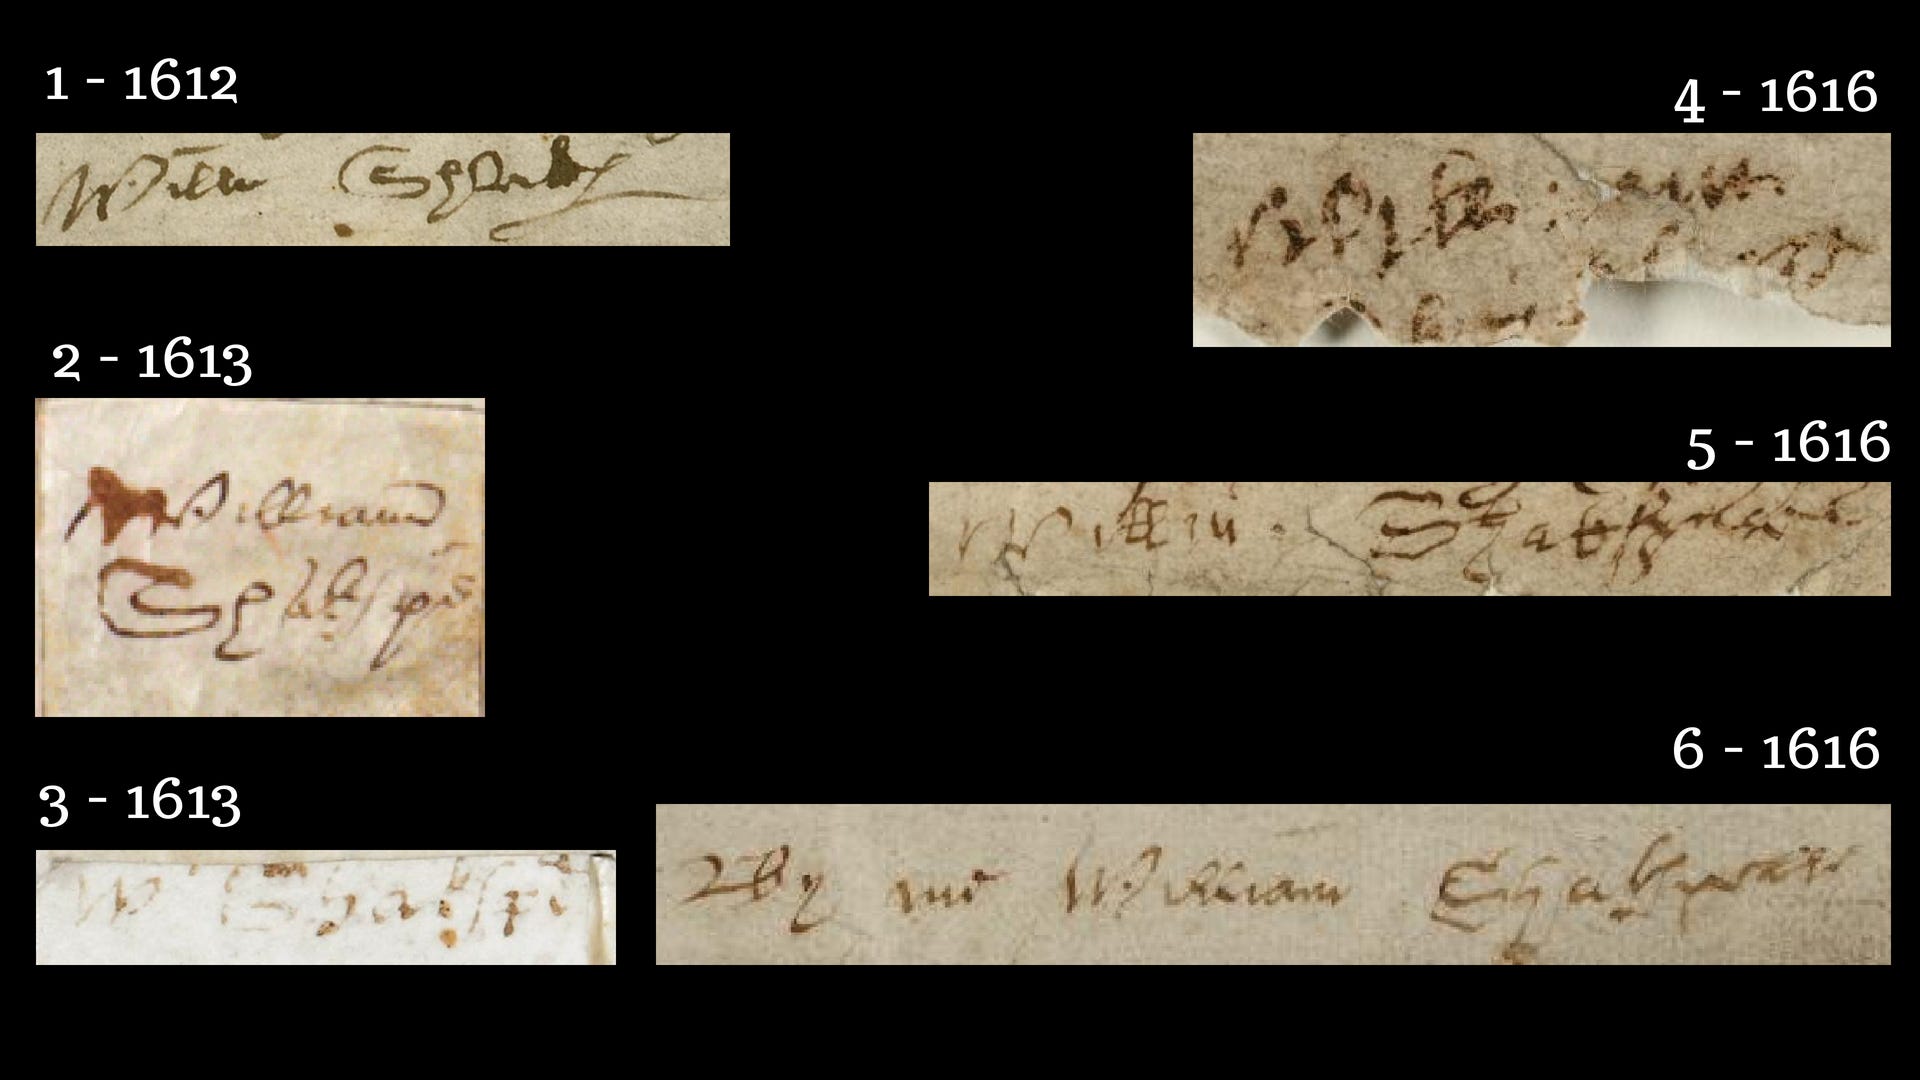 1 - 1612
Willm Shakp
2 - 1613
William
Shakspē
3 - 1613
W Shakspē
4 - 1616
William
5 - 1616
Willm Shakspere
6 - 1616
By me William Shakspeare